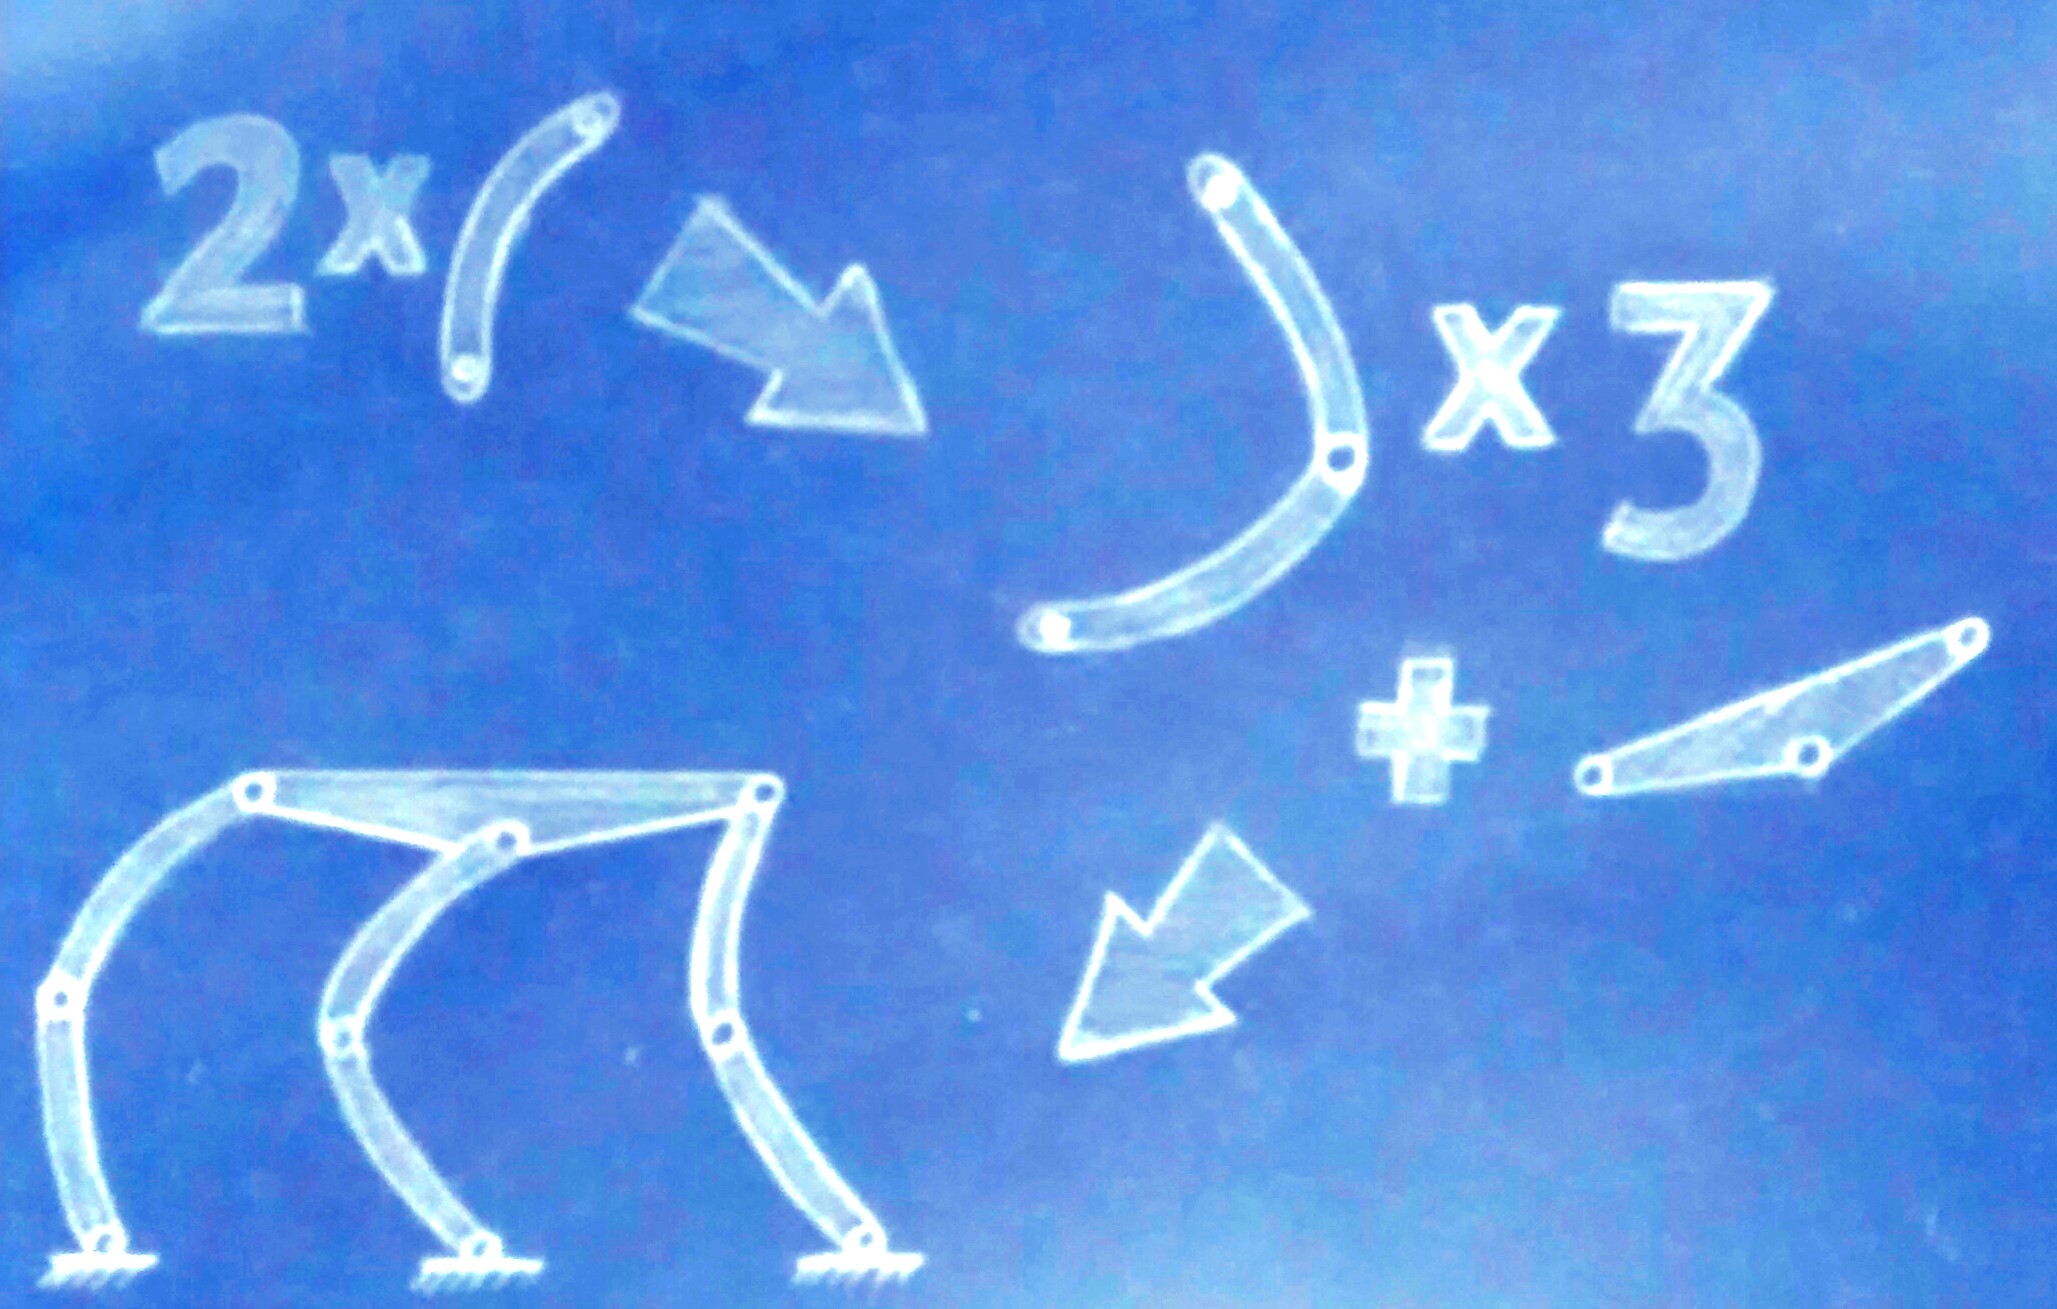 2x
x3
+